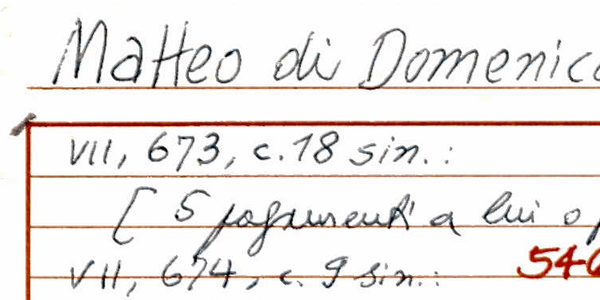 Matteo di Domenico
VII, 673, c. 18 sin.:
[ 5 pagamenti a lui o
VII, 674, c. 9 sin.: 546